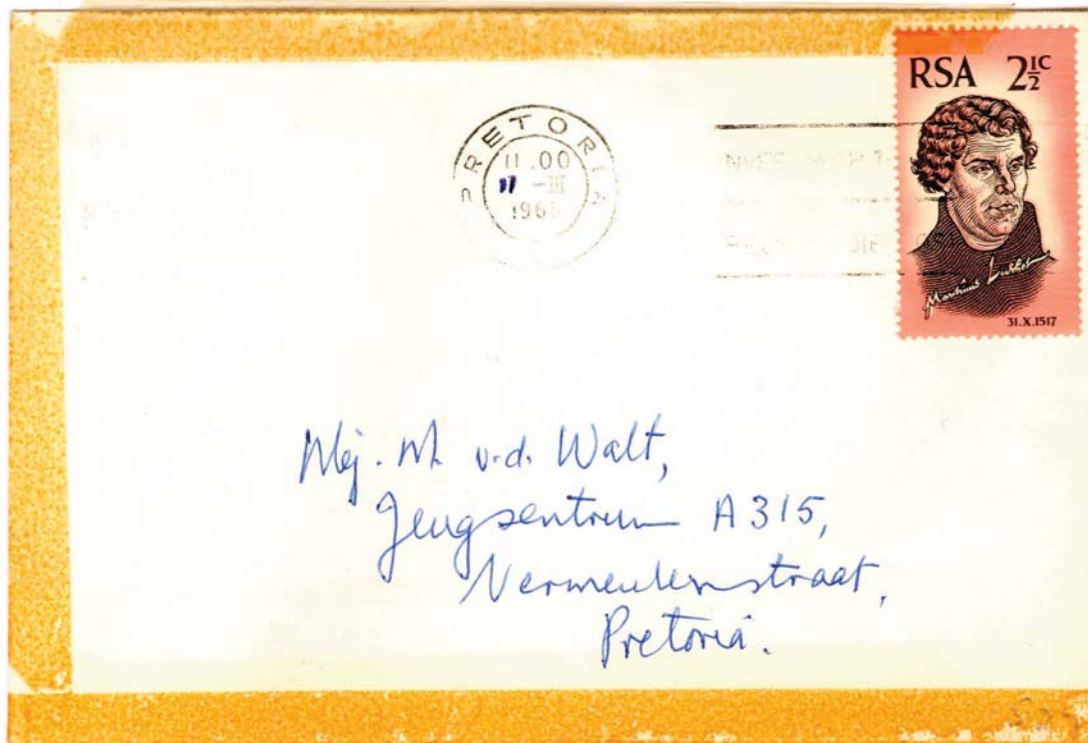 RSA 2½c
PRETORIA
11.00
17 -III
196
Martinus Luther
31.X.1517
Mej. M. v.d. Walt,
Jeugsentrum A315,
Vermeulenstraat,
Pretoria.